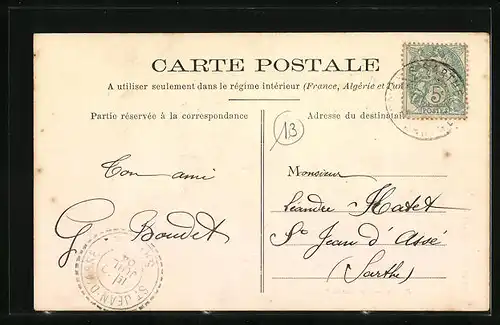 CARTE POSTALE
A utiliser seulement dans le régime intérieur (France, Algérie et Tun
Partie réservée à la correspondance
Adresse du destinatai
13
5
POSTES
Ton ami
G Boudet
Monsieur
Léandre Hatet
St Jean d'Assé
(Sarthe)
ST JEAN D'ASSÉ